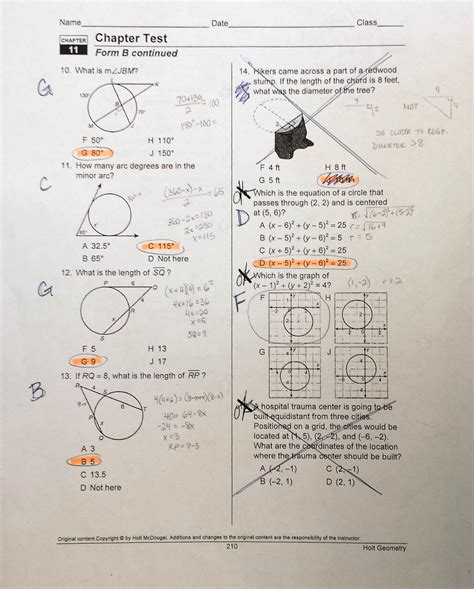 Name Date Class
CHAPTER
11
Chapter Test
Form B continued
10. What is m∠JBM?
G
130°
K
B
70°
M
J
70+130
2
=100
180°-100=
F 50° H 110°
G 80° J 150°
11. How many arc degrees are in the
minor arc?
C
65°
(360-x)-x
2
=65
360-2x=130
2x=230
x=115
A 32.5° C 115°
B 65° D Not here
12. What is the length of SQ ?
G
P
6
Q
4
R
x
S
(x+4)4 = 6²
4x+16=36
4x=20
x=5
SQ=9
F 5 H 13
G 9 J 17
13. If RQ = 8, what is the length of RP ?
B
R
4
6
T
8-x
P
x
Q
4(4+6)=(8-x+x)(8-x)
40= 64-8x
-24 = -8x
x=3
RP=8-3
A 3
B 5
C 13.5
D Not here
14. Hikers came across a part of a redwood
stump. If the length of the chord is 8 feet,
what was the diameter of the tree?
NOT
SO CLOSE TO EDGE.
DIAMETER >8
F 4 ft H 8 ft
G 5 ft
Which is the equation of a circle that
passes through (2, 2) and is centered
at (5, 6)?
D
r=5
A (x − 6)² + (y − 5)² = 25
B (x − 5)² + (y − 6)² = 5
C (x + 5)² + (y + 6)² = 25
D (x − 5)² + (y − 6)² = 25
Which is the graph of
(x − 1)² + (y + 2)² = 4?
(1,-2) r=2
F
F H
G J
A hospital trauma center is going to be
built equidistant from three cities.
Positioned on a grid, the cities would be
located at (1, 5), (2, −2), and (−6, −2).
What are the coordinates of the location
where the trauma center should be built?
A (−2, −1) C (2, −1)
B (−2, 1) D (2, 1)
Original content Copyright © by Holt McDougal. Additions and changes to the original content are the responsibility of the instructor.
210
Holt Geometry